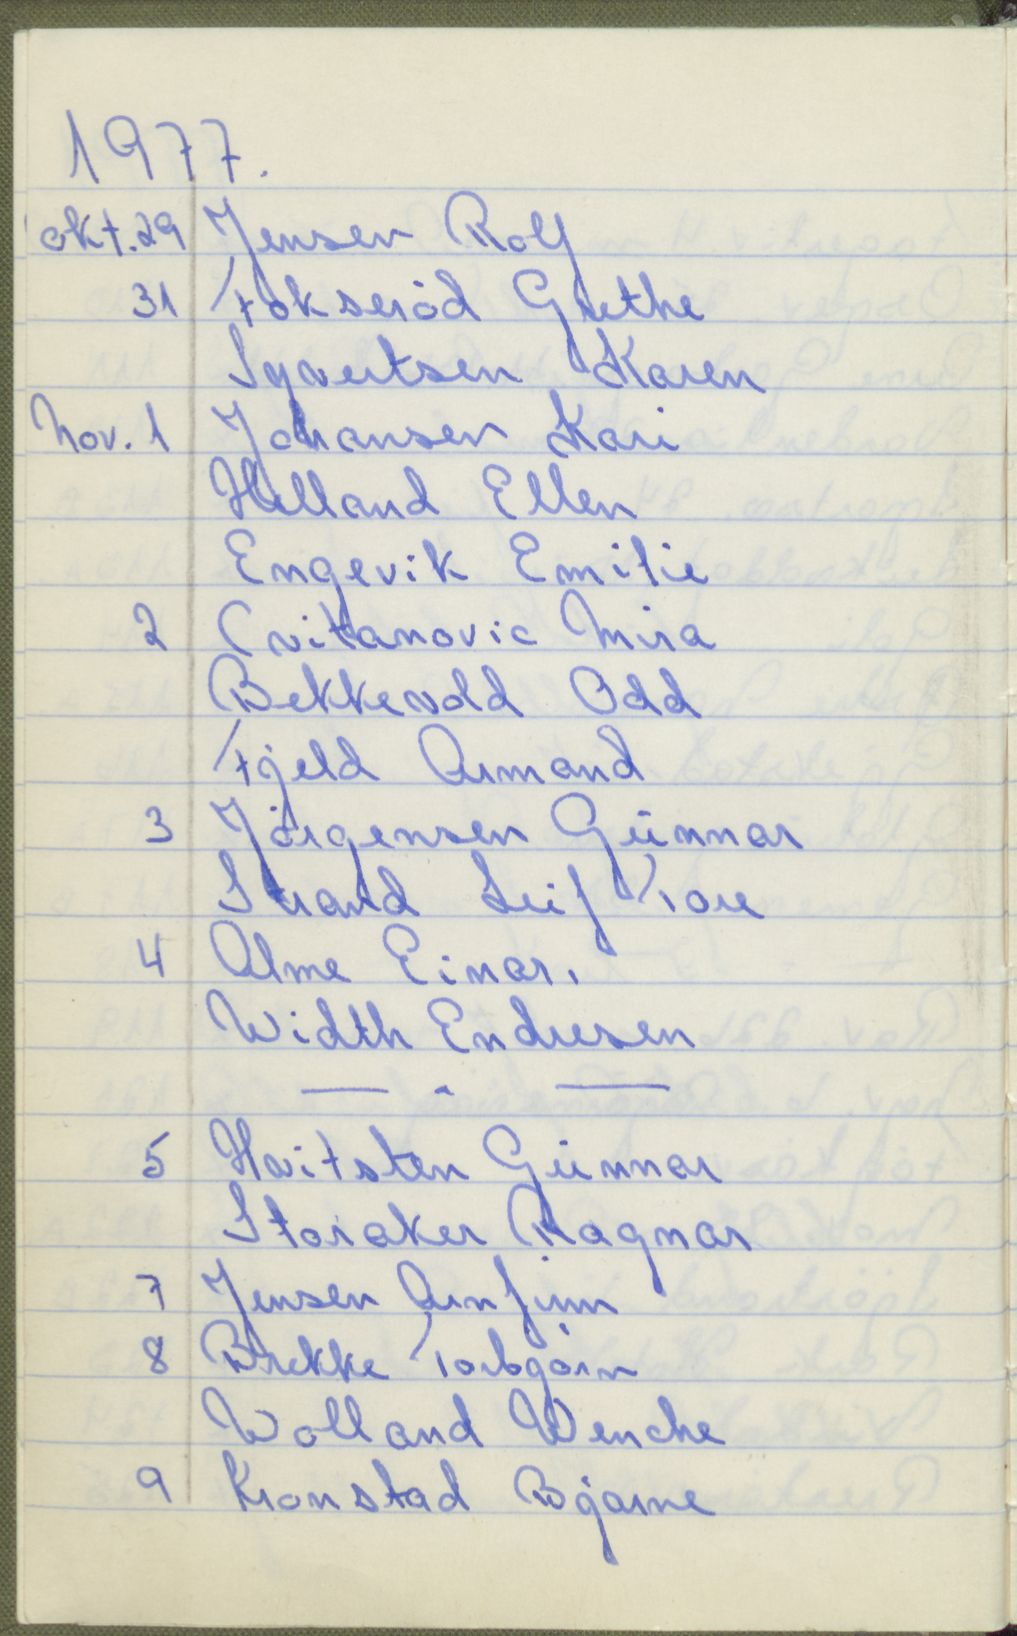 1977.
okt. 29 Jensen Rolf
31 Fokseröd Grethe
Syvertsen Karen
Nov. 1 Johansen Kari
Helland Ellen
Engevik Emilie
2 Cvitanovic Mira
Bekkevold Odd
Fjeld Armand
3 Jörgensen Gunnar
Strand Leif Tore
4 Alme Einar.
Width Endresen
— " —
5 Hvitsten Gunnar
Storaker Ragnar
7 Jensen Arnfinn
8 Brekke Torbjörn
Wolland Wenche
9 Kronstad Bjarne